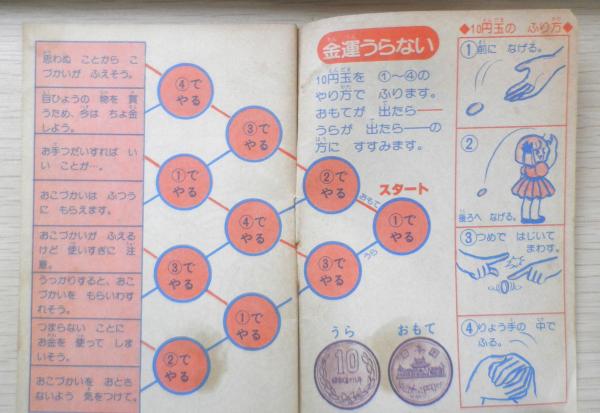 思わぬ ことから こ
づかいが ふえそう。
目ひょうの 物を 買
うため、今は ちょ金
しよう。
お手つだいすれば い
い ことが…。
おこづかいは ふつう
に もらえます。
おこづかいが ふえる
けど 使いすぎに 注
意。
うっかりすると、おこ
づかいを もらいわす
れそう。
つまらない ことに
お金を 使って しま
いそう。
おこづかいを おとさ
ないよう 気をつけて。
④で
やる
③で
やる
①で
やる
②で
やる
④で
やる
③で
やる
③で
やる
①で
やる
②で
やる
スタート
①で
やる
おもて
うら
金運うらない
10円玉を ①〜④の
やり方で ふります。
おもてが 出たら——
うらが 出たら——の
方に すすみます。
うら
おもて
10
日本国
◆10円玉の ふり方◆
①前に なげる。
②
後ろへ なげる。
③つめで はじいて
まわす。
④りょう手の 中で
ふる。